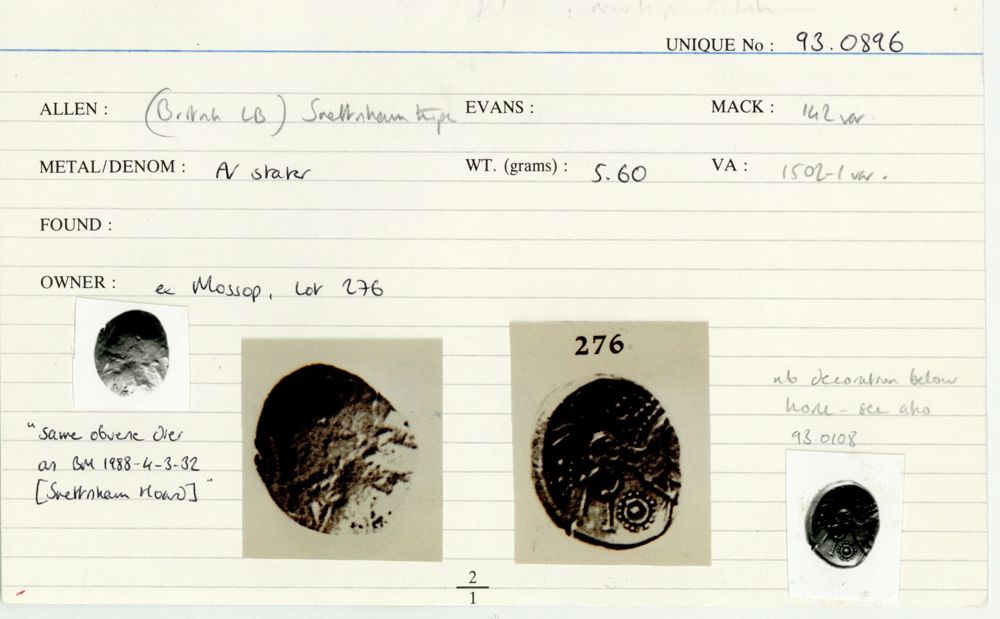 UNIQUE No : 93.0896
ALLEN : (British LB) Snettisham type EVANS : MACK : 142 var.
METAL/DENOM : AV stater WT. (grams) : 5.60 VA : 1502-1 var.
FOUND :
OWNER : ex Mossop, Lot 276
276
nb decoration below
horse - see also
93.0108
"same obverse dies
as BM 1988-4-3-32
[Snettisham Hoard]"
2
1